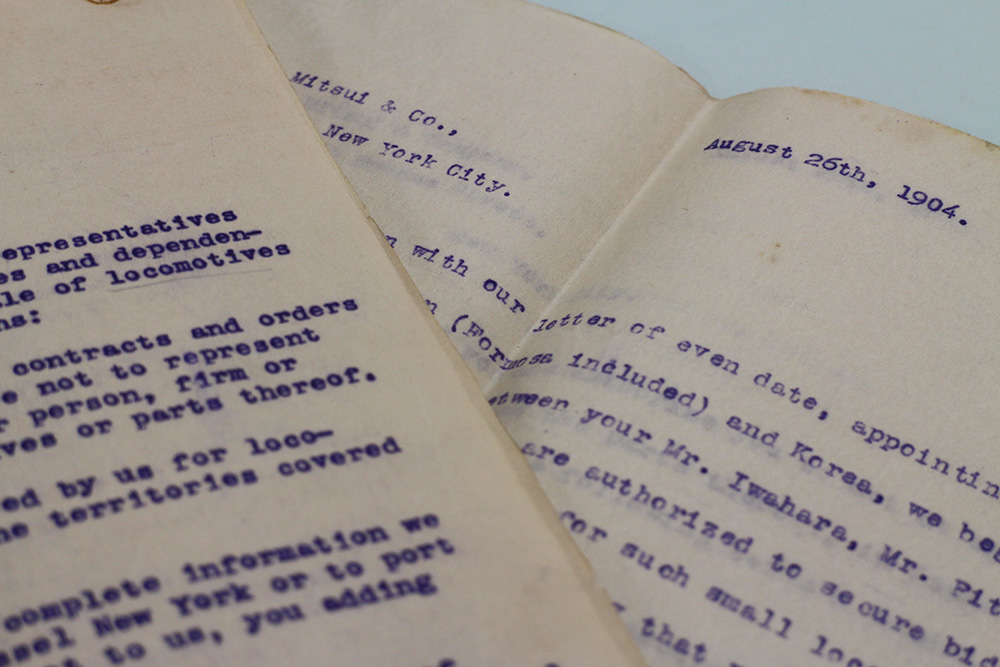 epresentatives
es and dependen-
le of locomotives
ns:
contracts and orders
e not to represent
r person, firm or
ves or parts thereof.
ed by us for loco-
he territories covered
complete information we
ssel New York or to port
t to us, you adding
Mitsui & Co.,
New York City.
August 26th, 1904.
n with our letter of even date, appointin
n (Formosa included) and Korea, we be
etween your Mr. Iwahara, Mr. Pit
are authorized to secure bid
for such small loc
that